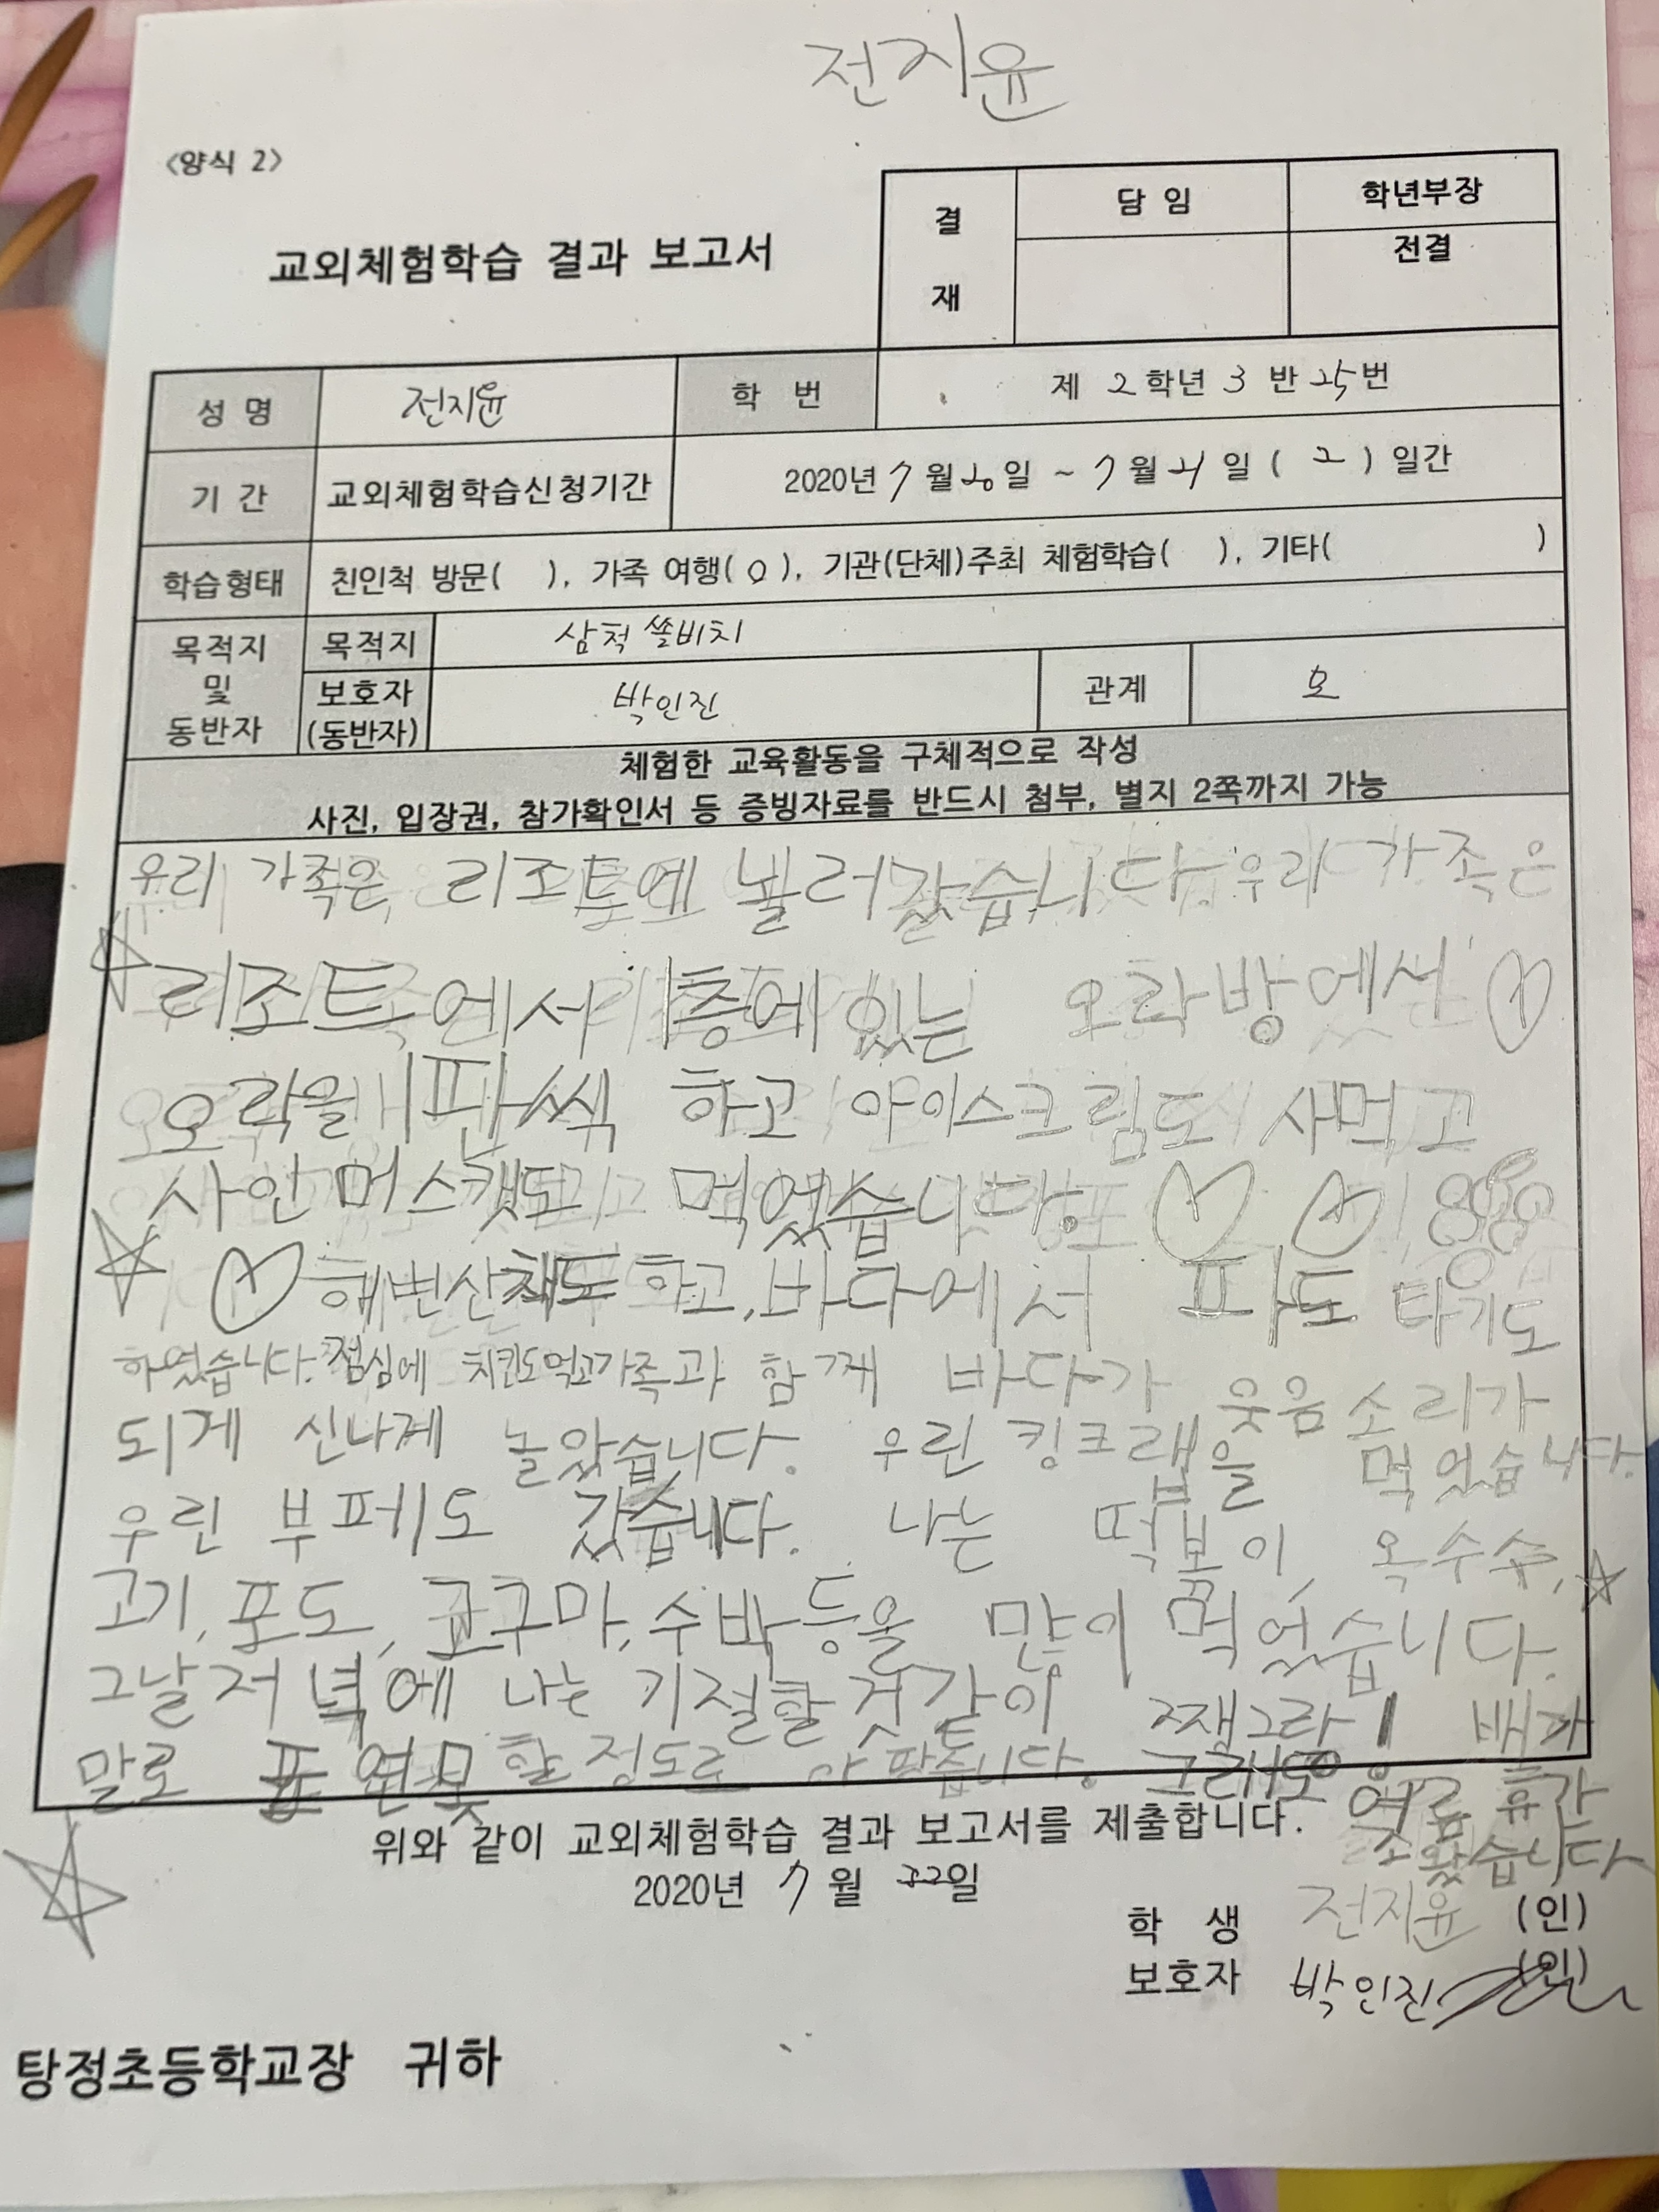 전지윤
<양식 2>
교외체험학습 결과 보고서
결재 담 임 학년부장
전결
성 명 전지윤 학 번 제 2학년 3 반 25번
기 간 교외체험학습신청기간 2020년 7월 20일 ~ 7월 21일 ( 2 ) 일간
학습형태 친인척 방문( ), 가족 여행( O ), 기관(단체)주최 체험학습( ), 기타( )
목적지 및 동반자 목적지 삼척 쏠비치
보호자 (동반자) 박인진 관계 모
체험한 교육활동을 구체적으로 작성
사진, 입장권, 참가확인서 등 증빙자료를 반드시 첨부, 별지 2쪽까지 가능
우리 가족은 리조트에 놀러갔습니다. 우리 가족은
리조트에서 1층에 있는 오락방에서
오락을 1판씩 하고 아이스크림도 사먹고
사인머스캣도 먹었습니다.
해변산책도 하고, 바다에서 파도 타기도
하였습니다. 점심에 치킨도먹고가족과 함께 바다가 웃음소리가
되게 신나게 놀았습니다. 우린 킹크랩을 먹었습니다.
우린 부페도 갔습니다. 나는 떡볶이, 옥수수,
고기, 포도, 군구마, 수박등을 많이 먹었습니다.
그날저녁에 나는 기절할것같이 쨍그랑! 배가
말로 표현못할정도로 아팠습니다. 그래도 여름휴가
위와 같이 교외체험학습 결과 보고서를 제출합니다.
2020년 7월 22일
학 생 전지윤 (인)
보호자 박인진 (인)
탕정초등학교장 귀하